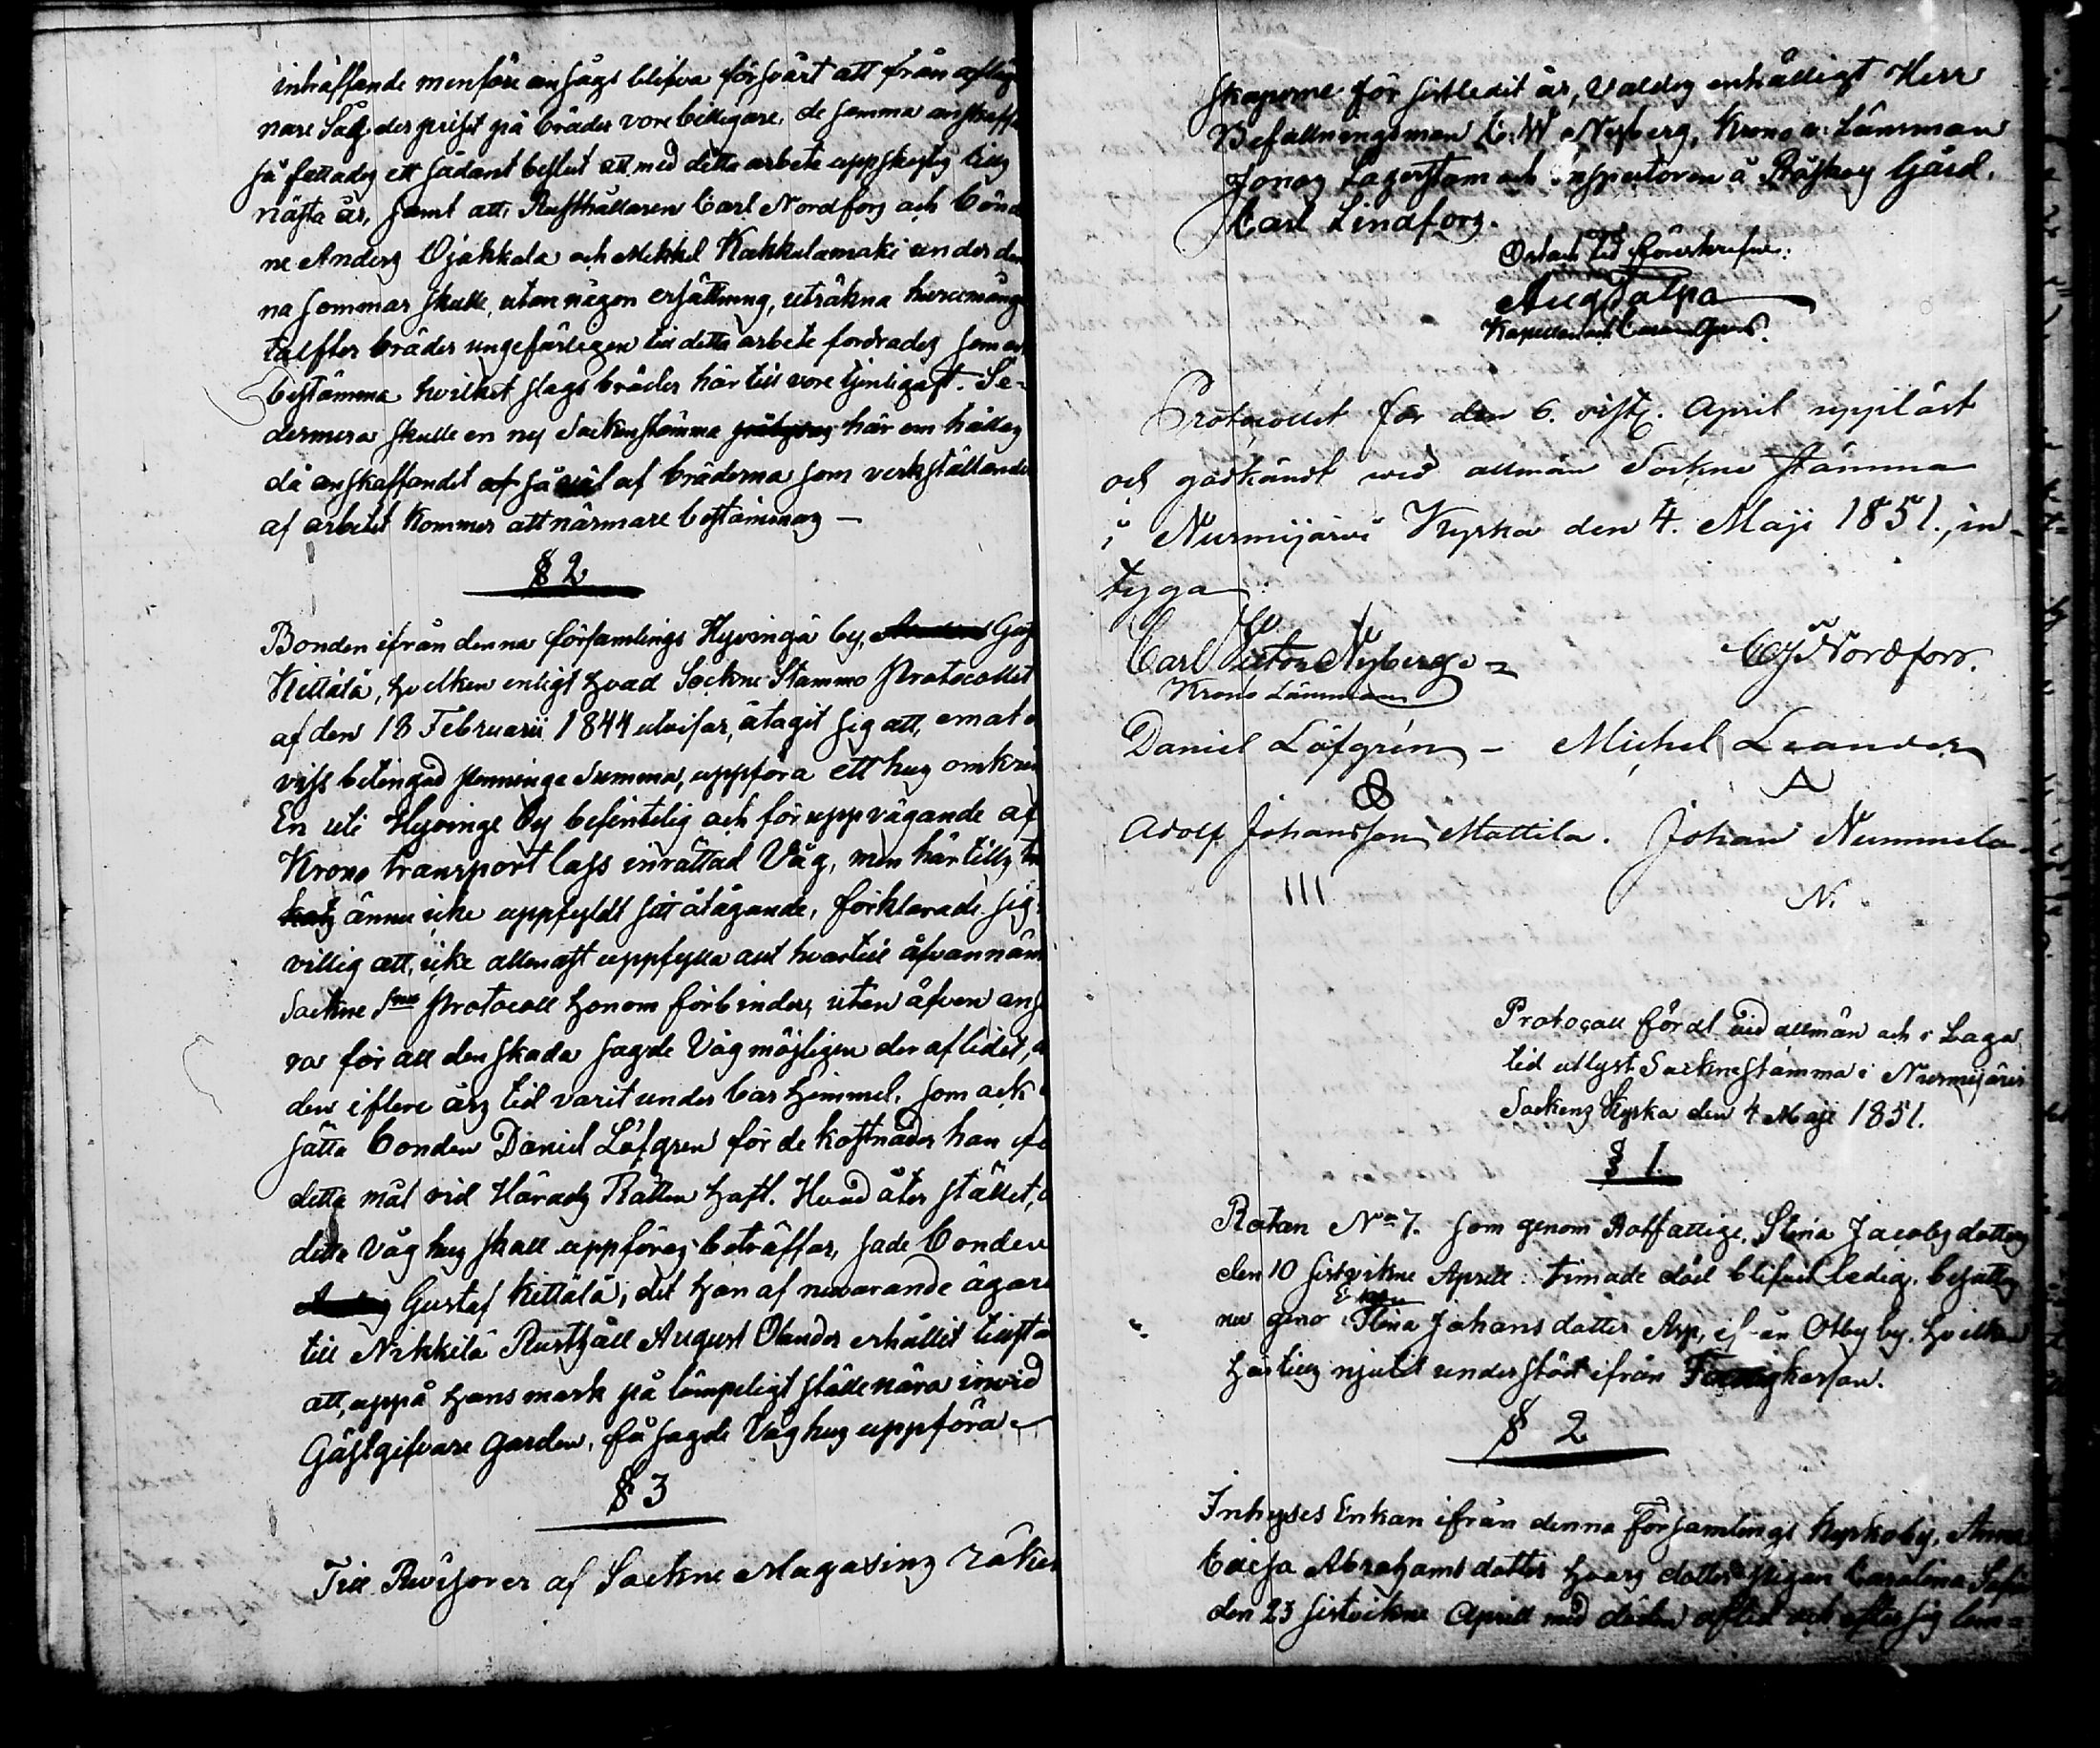 inträffande menföre ansågs blifva för svårt att från aflägs
nare Såg der priset på bräder vore billigare, de samma anskaffa
så fattades ett sådant beslut att med detta arbete uppskjutes till
nästa år, samt att, Rusthållaren Carl Nordfors och Bönd
ne Anders Ojakkala och Mikkel Kahkalamäki under den
na sommar skulle, utan någon ersättning, uträkna huru många
tolfter bräder ungefärligen till detta arbete fordrades som
bestämma hvilket slags bräder här till vore tjenligast. Se-
dermera skulle en ny Sockenstämma här om hållas
då anskaffandet af så väl af bräderna som verkställande
af arbetet kommer att närmare bestämmas —
§ 2
Bonden ifrån denna församlings Hyvingä by, Gust
Kittälä, hvilken enligt hvad Sockne Stämmo Protocollet
af den 18 Februarii 1844 utvisar, åtagit sig att, emot en
viss betingad penninge Summa, uppföra ett hus omkring
En uti Hyvinge by befintelig och för uppvägande af
Krono transport lass inrättad Våg, men här tills
ännu icke uppfyldt sitt åtagande, förklarade sig
villig att, icke allenast uppfylla allt hvartill åfvannäm
Sockne Protocoll honom förbinder, utan äfven ans
ra för all den skada sagde Våg möjligen der af lidet,
den i flere års tid varit under bar himmel, som ock
sätta bonden Daniel Löfgren för de kostnader han i
detta mål vid Härads Rätten haft. Hvad åter stället,
detta Våg hus skall uppföras beträffar, sade bonden
Gustaf Kittälä, det han af nuvarande ägare
till Nikkilä Rusthåll August Olander erhållit tillstå
att, uppå hans mark på lämpeligt ställe nära invid
Gästgifvare garden, få sagde Våghus uppföra —
§ 3
Till Revisorer af Sockne Magasins räken
skaperne för sistledit år, valdes enhälligt Herr
Befallningsman C. W. Nyberg, Krono v: Länsman
Jonas Lagerstam och Inspectoren å Råskog Gård,
Carl Lindfors.
Ort och tid föreskrefne:
Aug Talpa
Protocollet för den 6. sistl. April uppläst
och godkändt wid allmän Sockne stämma
i Nurmijärvi Kyrka den 4. Maji 1851., in-
tyga:
Carl Victor Nyberg
Krono Länsman
CG Nordfors.
Daniel Löfgrén — Michel Leander
Adolf Johansson Mattila. Johan Nummela.
III N.
Protocoll fördt vid allmän och i Laga
tid utlyst Socknestämma i Nurmijärvi
Sockens Kyrka den 4 Maji 1851.
§ 1.
Rotan No 7. som genom Rotfattige, Stina Jacobsdotters
den 10 sistvikne April timade död blifvit ledig, besattes
nu geno Enkan Stina Johansdotter Asp, ifrån Otby by, hvilken
här tills njutit understöd ifrån Fattigkassan.
§ 2
Inhyses Enkan ifrån denna Församlings Kyrkoby, Anna
Caisa Abrahamsdotter hvars dotter pigan Carolina Sofia
den 23 sistvikne April med döden aflidit och efter sig lem-